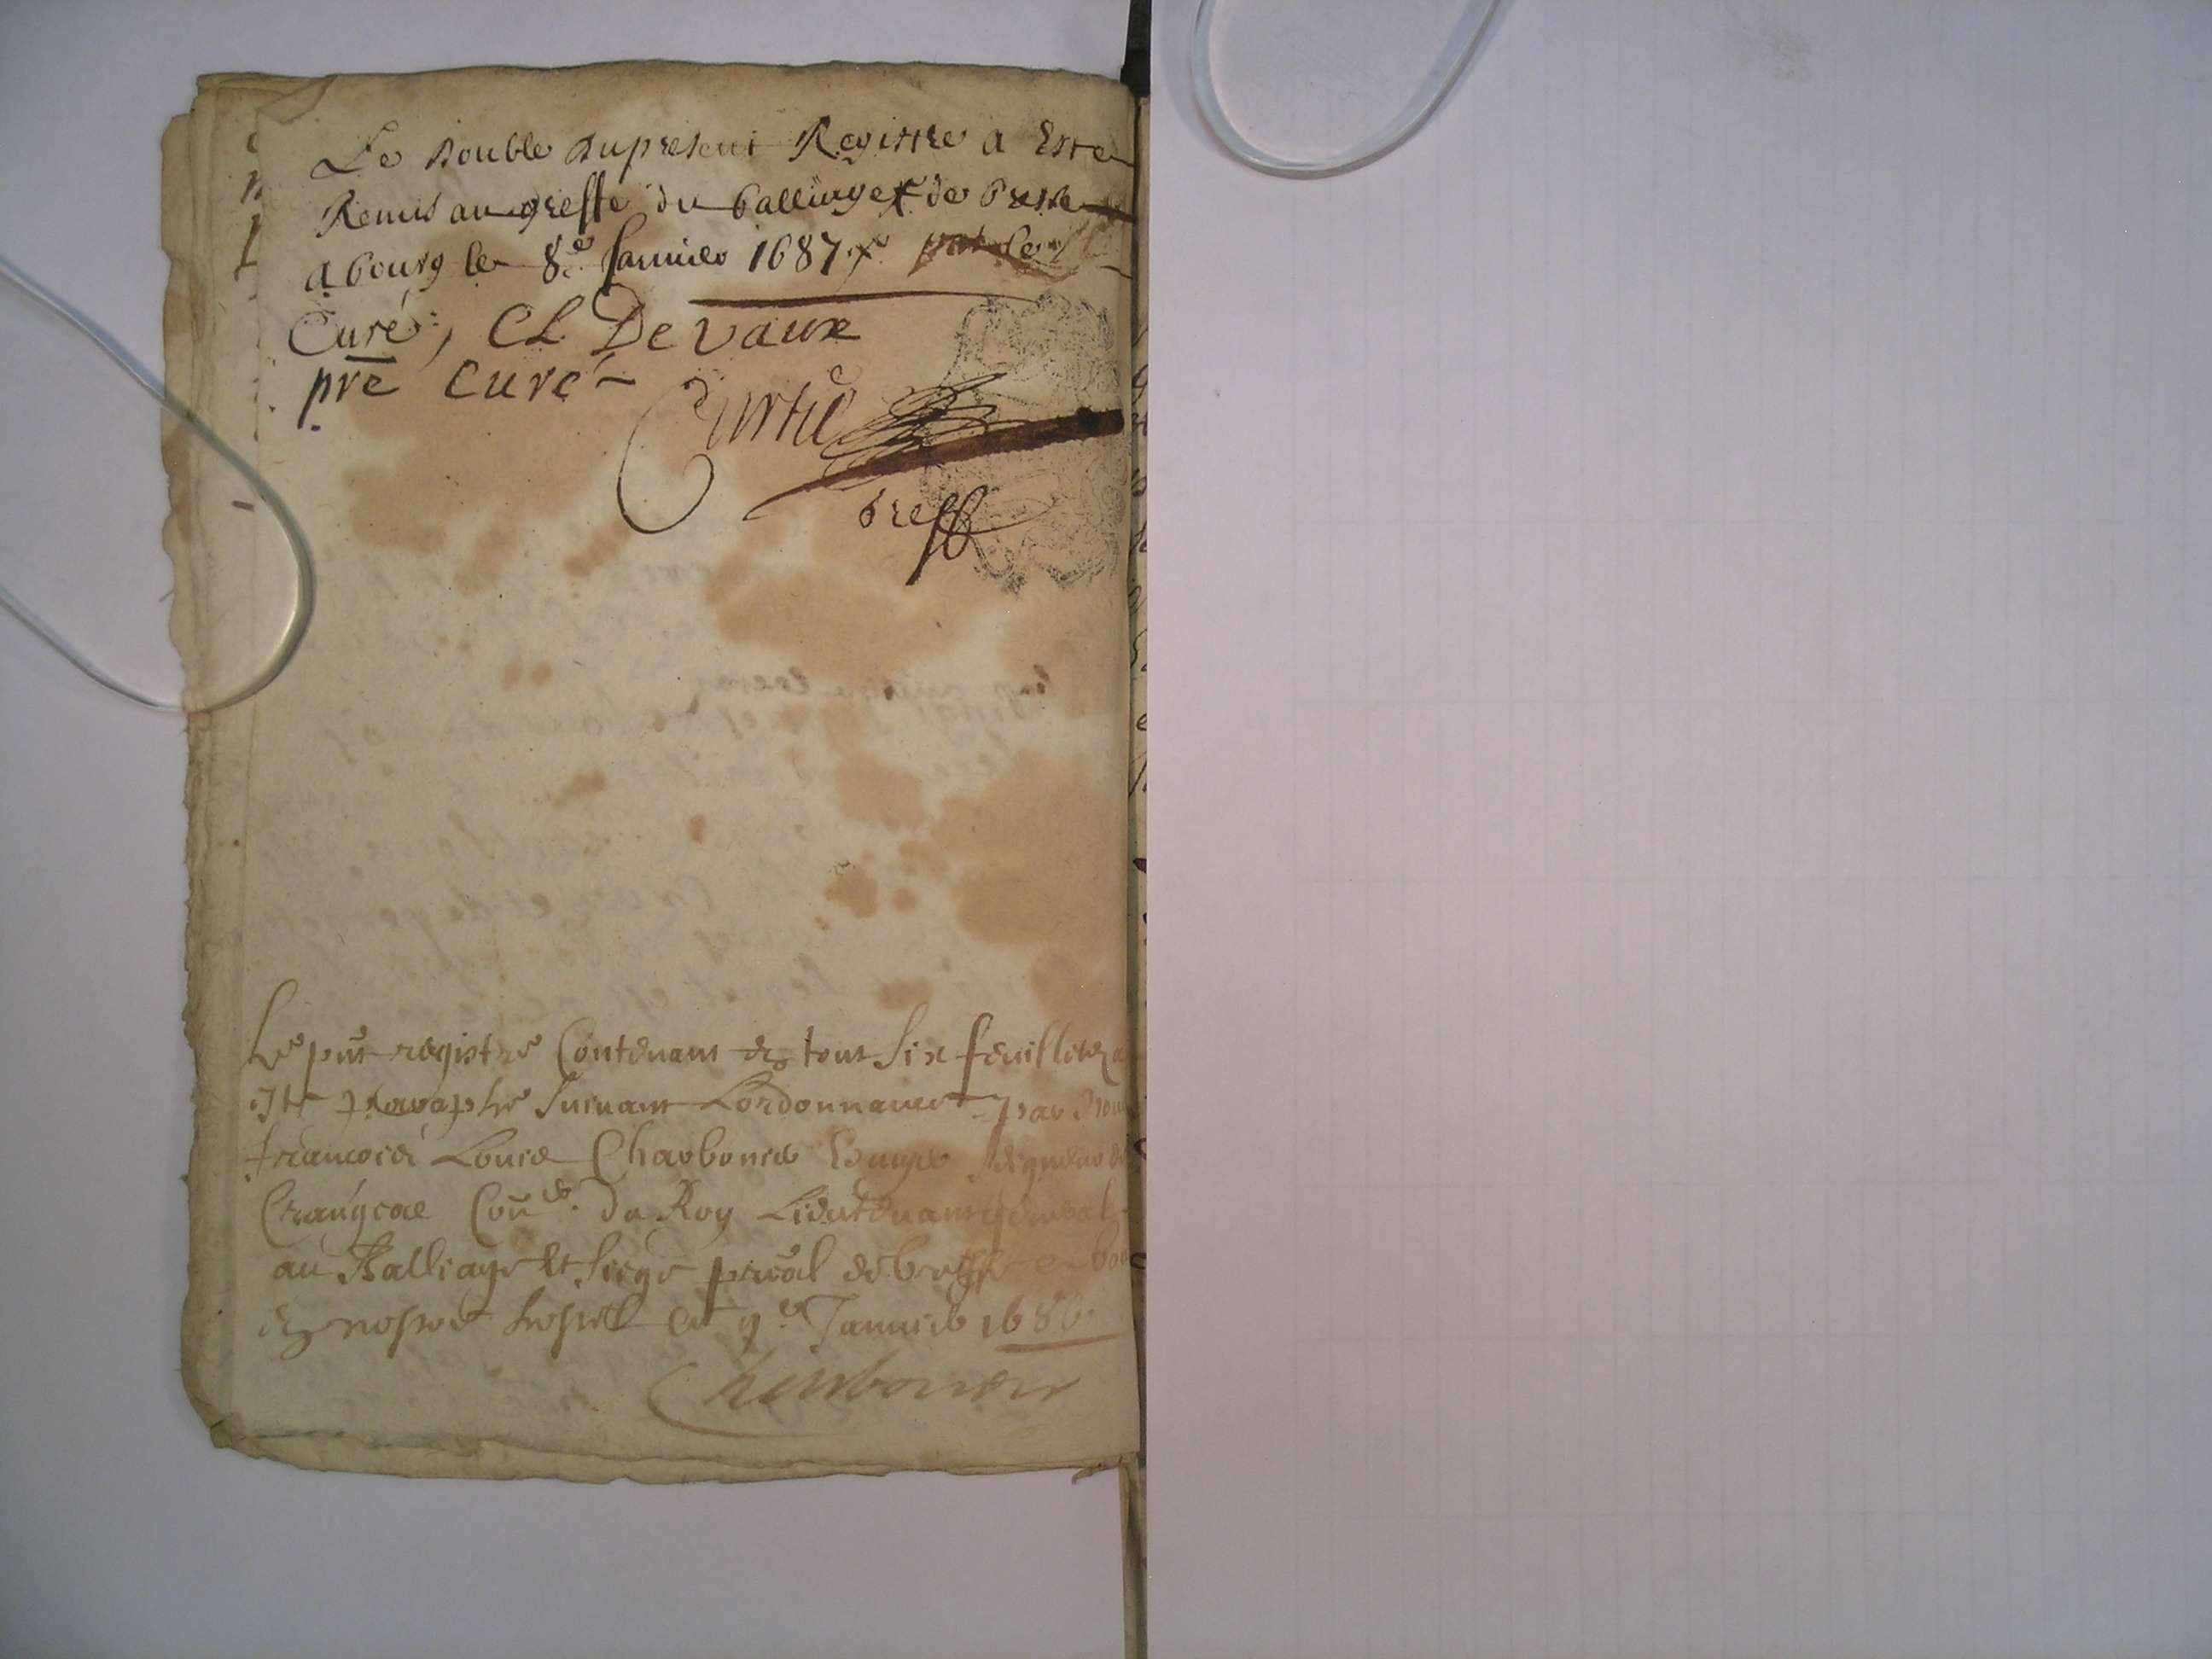 Le double du present Registre a Esté
Remis au greffe du balliage de bresse
a bourg le 8e Janvier 1687 par le
Curé, CL De vaux
pre curé
Curtil
greff
Le pnt registre Contenant en tout six feuilletz a
Esté paraphé suivant Lordonnance par
francois Louis Charbonier Escuyer seigneur de
Crangeac Con.er du Roy Lieutenant general
au Balliage et siege pñal de bresse
en nostre hostel ce 9e Janvier 1686
Charbonier